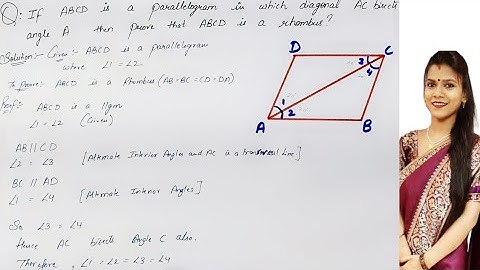 Q: If ABCD is a parallelogram in which diagonal AC bisects
angle A then prove that ABCD is a rhombus?
Solution:- Given:- ABCD is a parallelogram
where ∠1=∠2
To Prove:- ABCD is a Rhombus (AB=BC=CD=DA)
Proof:- ABCD is a 11gm
∠1=∠2 (Given)
AB||CD
∠2 = ∠3 [Alternate Interior Angles and AC is a transversal Line]
BC || AD
∠1 = ∠4 [Alternate Interior Angles]
So ∠3 = ∠4
Hence AC bisects Angle C also.
Therefore, ∠1=∠2=∠3=∠4
D
C
3
4
1
2
A
B